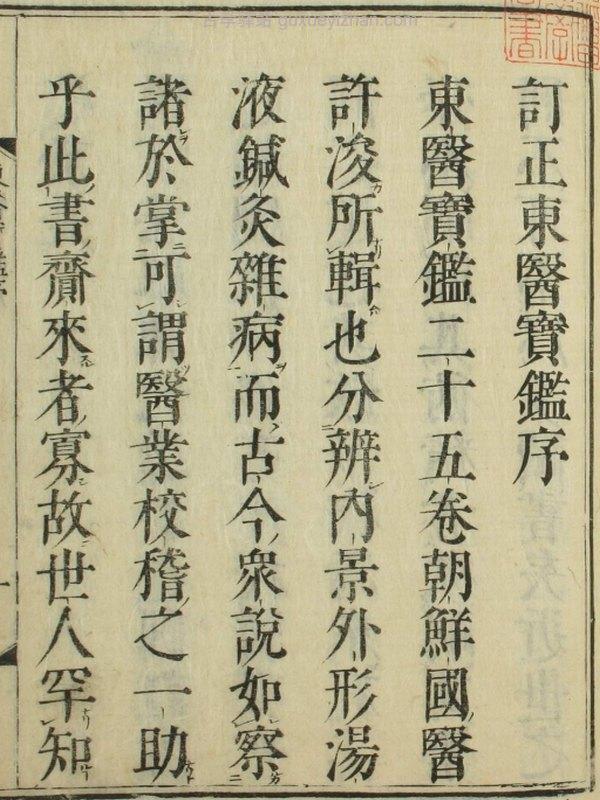 古学驿站 guoxueyizhan.com
訂正東醫寶鑑序
東醫寶鑑二十五卷朝鮮國醫
許浚所輯也分辨內景外形湯
液鍼灸雜病而古今衆說如察
諸於掌可謂醫業校稽之一助
乎此書齎來者寡故世人罕知